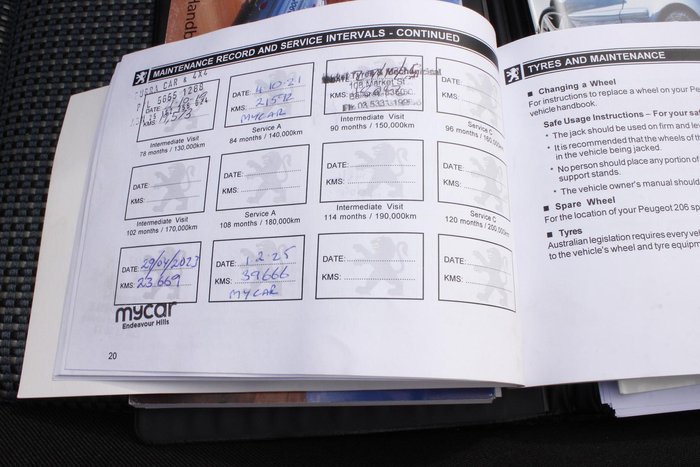 MAINTENANCE RECORD AND SERVICE INTERVALS - CONTINUED
Intermediate Visit
78 months / 130,000km
DATE: 4.10.21
KMS: 21572
MYCAR
Service A
84 months / 140,000km
Tyres & Mechanical
108 Market St
Intermediate Visit
90 months / 150,000km
DATE:
KMS:
Service C
96 months /
DATE:
KMS:
Intermediate Visit
102 months / 170,000km
DATE:
KMS:
Service A
108 months / 180,000km
DATE:
KMS:
Intermediate Visit
114 months / 190,000km
DATE:
KMS:
Service C
120 months / 200,000
DATE: 29/04/2023
KMS: 23.669
mycar
Endeavour Hills
DATE: 1.2.25
KMS: 39666
MYCAR
DATE:
KMS:
DATE:
KMS:
20
TYRES AND MAINTENANCE
Changing a Wheel
For instructions to replace a wheel on your Pe
vehicle handbook.
Safe Usage Instructions – For your safe
* The jack should be used on firm and lev
* It is recommended that the wheels of th
in the vehicle being jacked.
* No person should place any portion of
support stands.
* The vehicle owner's manual should
Spare Wheel
For the location of your Peugeot 206 sp
Tyres
Australian legislation requires every veh
to the vehicle's wheel and tyre equipm